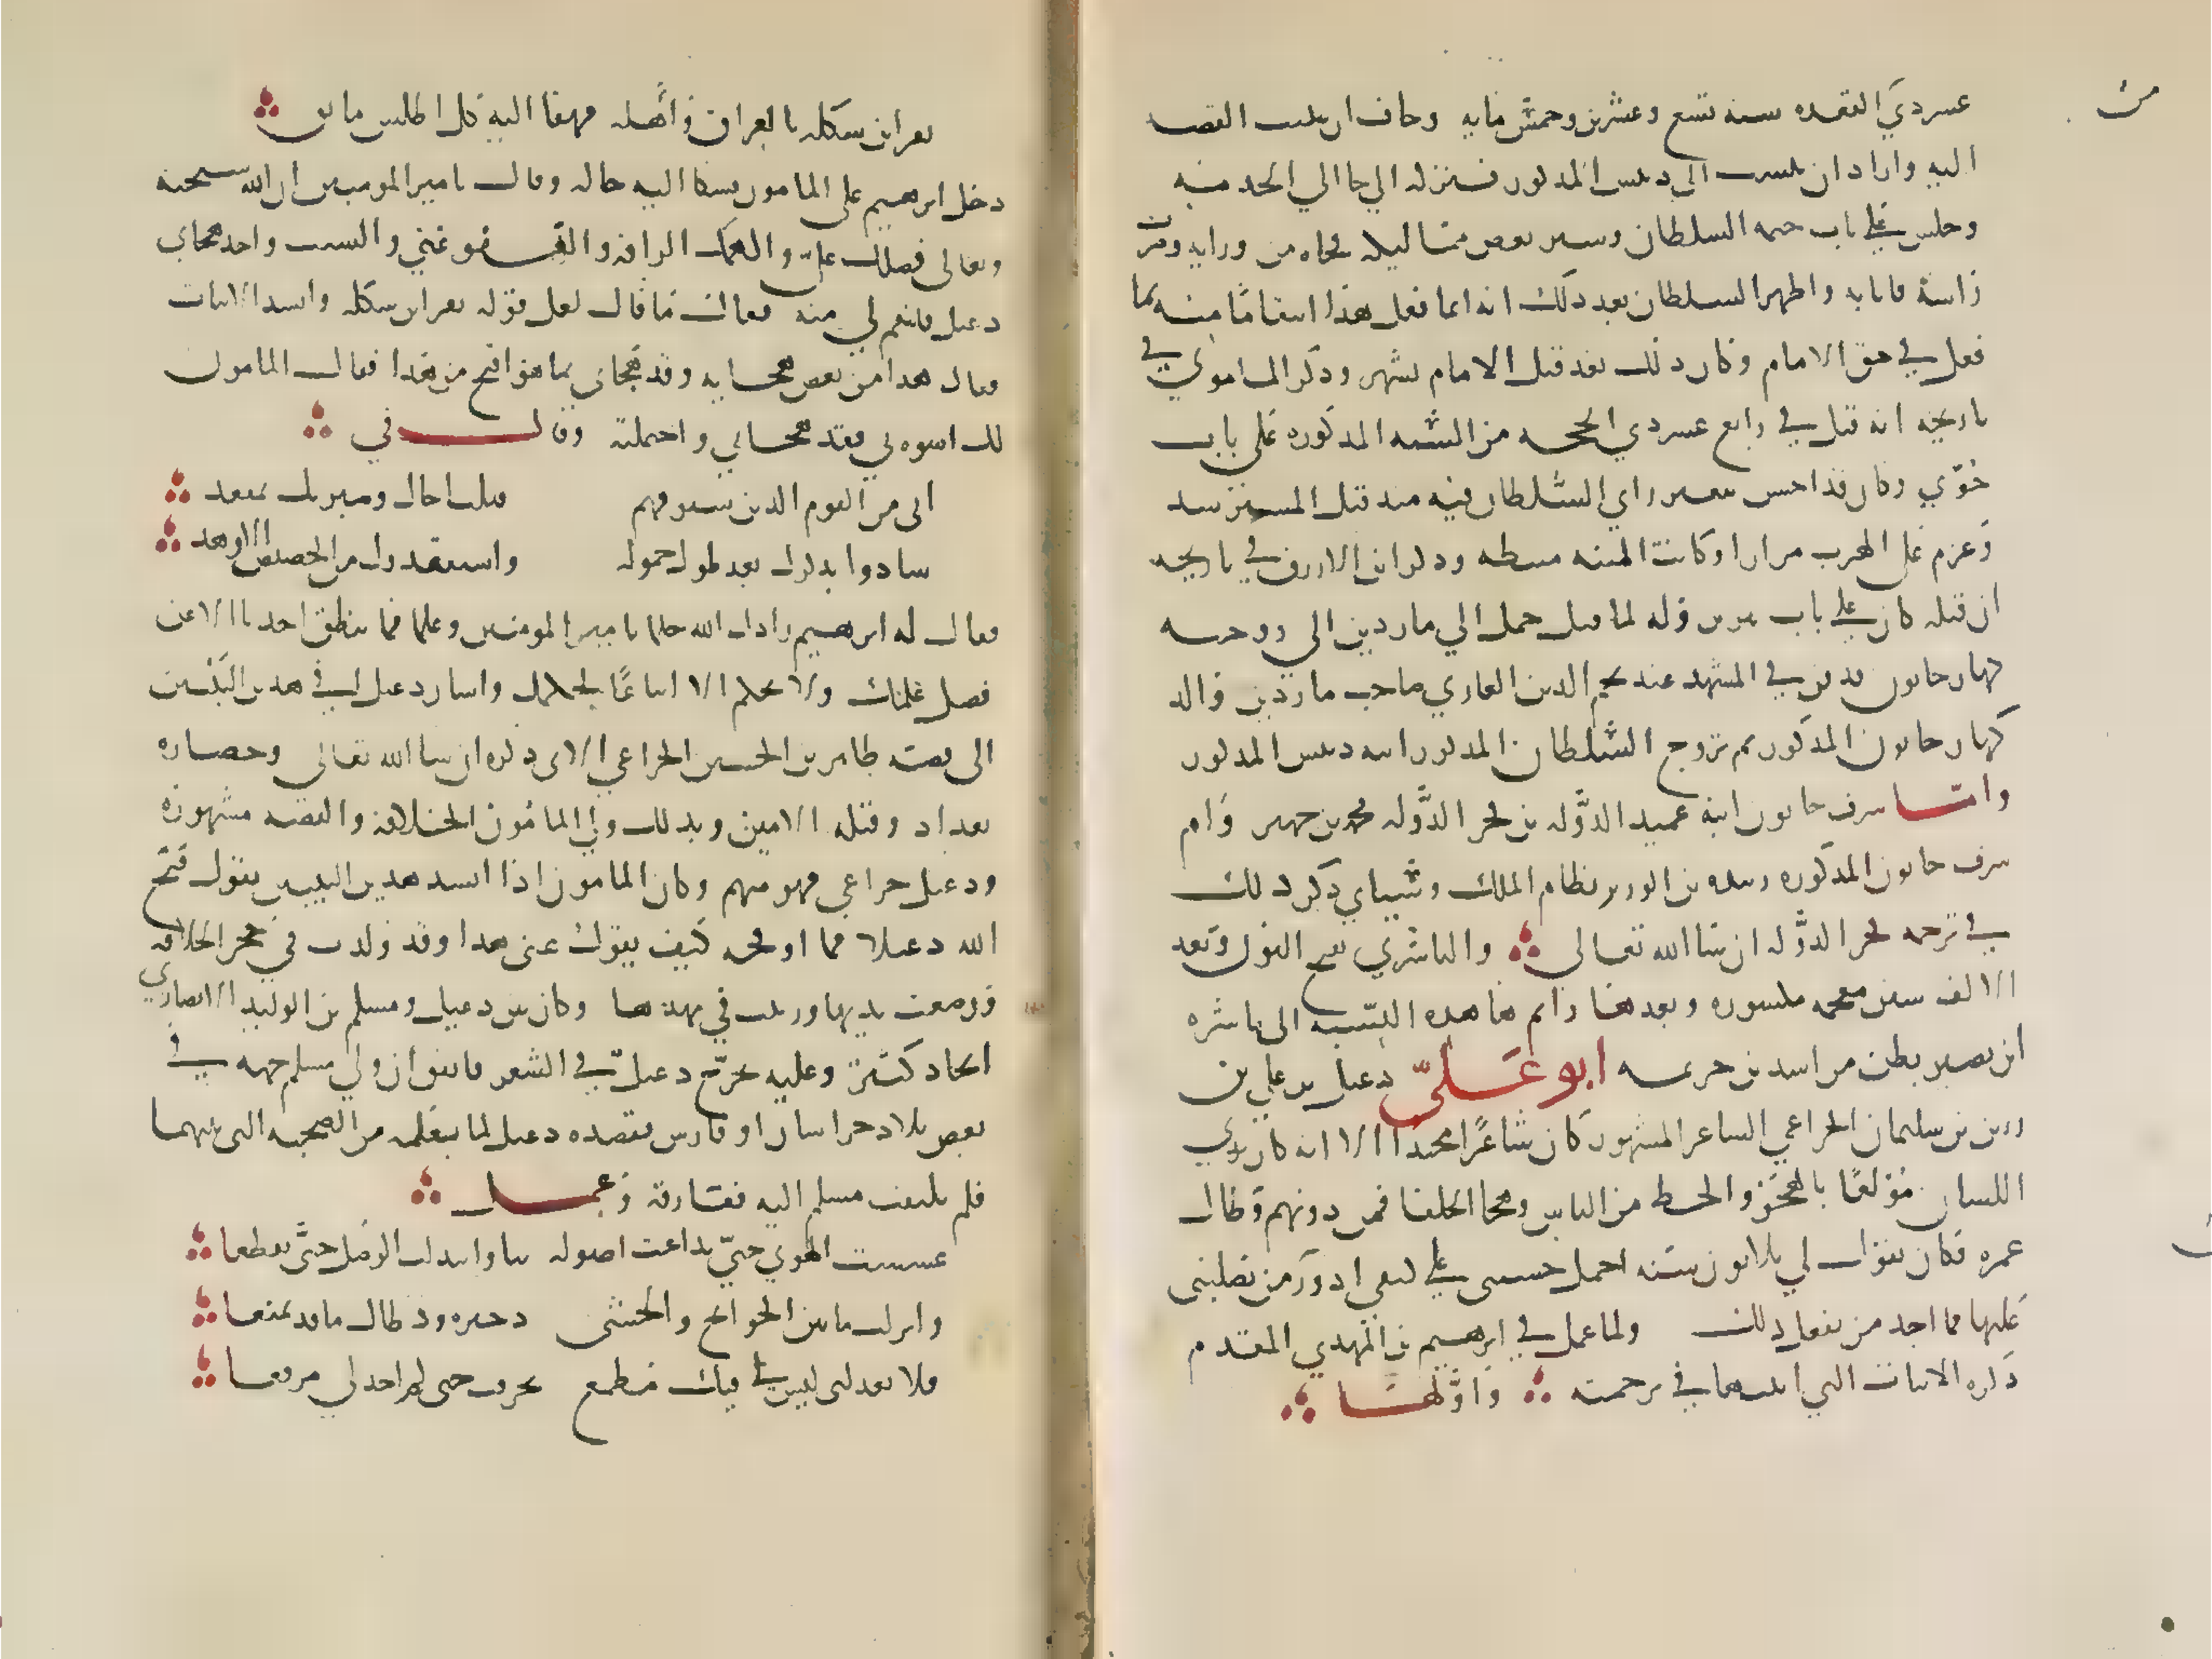 من
عشر ذي القعدة سنة تسع وعشرين وخمس مايه وخاف ان ينسب القصد
اليه واراد ان ينسب الى دبيس المذكور فتركه الي جا الي الخدمة
وجلس على باب خيمة السلطان وسير بعض مماليكه فجاه من ورايه وضرب
راسه فابانه واظهر السلطان بعد ذلك انه انما فعل هذا انتقاما منه بما
فعل في حق الامام وكان ذلك بعد قتل الامام بشهر وذكر الماموني في
تاريخه انه قتل في رابع عشر ذي الحجه من السنه المذكوره على باب
خوي وكان قد احس بتغير راي السلطان فيه منذ قتل المسترشد
وعزم على الهرب مرارا وكانت المنيه تثبطه وذكر ابن الازرق في تاريخه
ان قتله كان على باب تبريز وانه لما قتل حمل الي ماردين الى زوجته
كهار خاتون فدفن في المشهد عند نجم الدين الغازي صاحب ماردين والد
كهار خاتون المذكور ثم تزوج السلطان المذكور ابنه دبيس المذكور
وامها شرف خاتون ابنة عميد الدوله بن فخر الدوله محمد بن جهير وام
شرف خاتون المذكوره زبيده بن الوزير نظام الملك وسياتي ذكر ذلك
في ترجمه فخر الدوله ان شا الله تعالي والناشري بفتح النون وبعد
الالف شين معجمه مكسوره وبعدها را ثم ها هذه النسبه الى ناشره
ابن نصير بطن من اسد بن خزيمه ابو علي دعبل بن علي بن
رزين بن سليمان الخزاعي الشاعر المشهور كان شاعرا مجيدا الا انه كان بذي
اللسان مولعا بالهجو والحط من الناس وهجا الخلفا فمن دونهم وطال
عمره فكان يقول لي ثلاثون سنه احمل خشبتي على كتفي ادور من يصلبني
عليها فما اجد من يفعل ذلك ولما عمل في ابرهيم بن المهدي المقدم
ذكره الابيات التي اثبتها في ترجمته واولها
نعر ابن شكله بالعراق واهله فهفا اليه كل اطلس مايق
دخل ابرهيم على المامون فشكا اليه حاله وقال يا امير المومنين ان الله سبحنه
وتعالى فضلك علي والهمك الرافه والعفو عني والنسب واحد هجاني
دعبل فانتقم لي منه فقال ما قال لعل قوله نعر ابن شكله وانشد الابيات
فقال هذا من بعض هجايه وقد هجاني بما هو اقبح من هذا فقال المامون
لك اسوه بي فقد هجاني واحتملته وقال في
اني من القوم الذين سيوفهم قتلت اخاك وشرفتك بمقعد
شادوا بذكرك بعد طول خموله واستنقذوك من الحضيض الاوهد
فقال له ابرهيم زادك الله حلما يا امير المومنين وعلما فما ينطق احدنا الا عن
فضل علمك ولا يحلم الا اتباعا لحلمك واشار دعبل في هذين البيتين
الى قصه طاهر بن الحسين الخزاعي الاتي ذكره ان شا الله تعالى وحصاره
بغداد وقتله الامين وبذلك ولي المامون الخلافه والقصه مشهوره
ودعبل خزاعي فهو منهم وكان المامون اذا انشد هذين البيتين يقول قبح
الله دعبلا فما اوقحه كيف يقول عني هذا وقد ولدت في حجر الخلافه
ورضعت ثديها وربيت في مهدها وكان بين دعبل ومسلم بن الوليد الانصاري
اتحاد كثير وعليه تخرج دعبل في الشعر فاتفق ان ولي مسلم جهه في
بعض بلاد خراسان او فارس فقصده دعبل لما يعلمه من الصحبه التي بينهما
فلم يلتفت مسلم اليه ففارقه وعمل
غششت الهوي حتي تداعت اصوله بنا وابتذلت الوصل حتى تقطعا
وانزلت ما بين الجوانح والحشى ذخيره ود طال ما قد تمنعا
فلا تعذلني ليس لي فيك مطمع تخرقت حتى لم اجد لي مرقعا